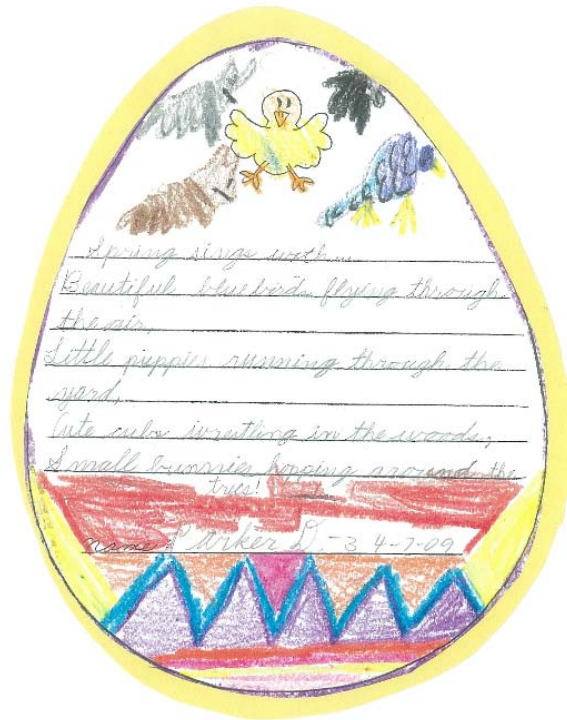 Spring sings with...
Beautiful bluebirds flying through
the air,
Little puppies running through the
yard,
Cute cubs wrestling in the woods,
Small bunnies hopping around the
trees!
name Parker D. -3 4-7-09